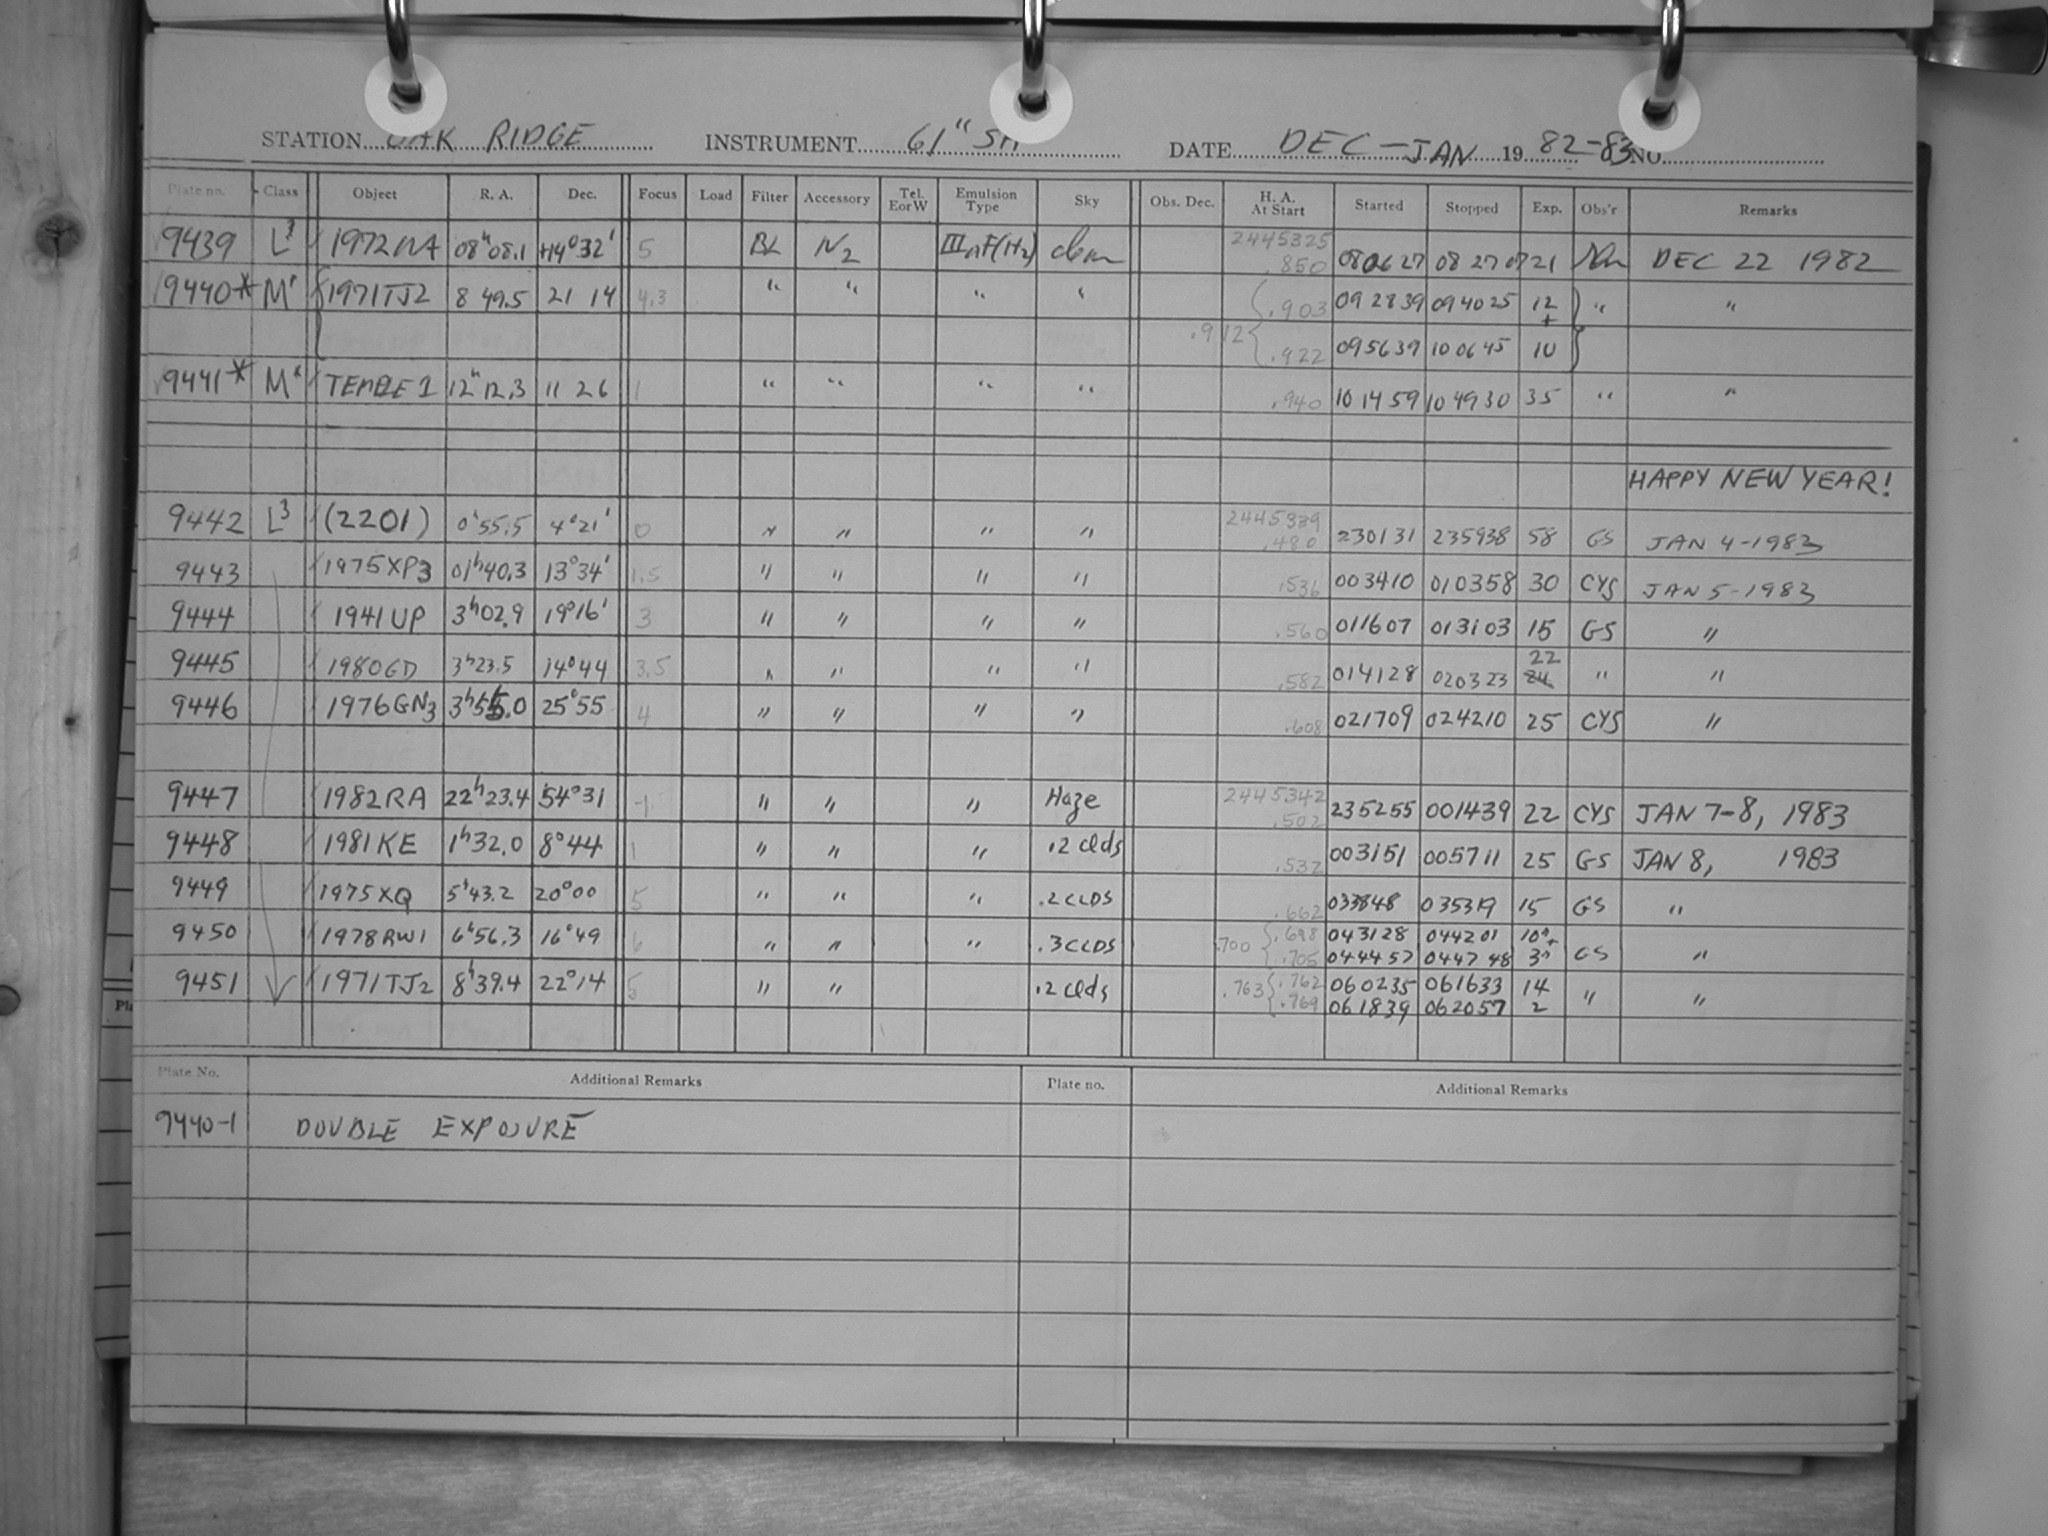 STATION OAK RIDGE INSTRUMENT 61" DATE DEC-JAN 1982-83 NO.
Plate no. Class Object R. A. Dec. Focus Load Filter Accessory Tel. E or W Emulsion Type Sky Obs. Dec. H. A. At Start Started Stopped Exp. Obs'r Remarks
2445325
9439 L3 08h08.1 +14°32' 5 BL N2 IIIaF(H2) clear .850 080627 082707 21 DEC 22 1982
9440* M' 1971TJ2 8 49.5 21 14 4.3 " " " " .903 092839 094025 12 " "
+
.912 .922 095639 100645 10
9441* M' TEMPLE 1 12h12.3 11 26 1 " " " " .940 101459 104930 35 " "
HAPPY NEW YEAR!
2445339
9442 L3 (2201) 0h55.5 4°21' 0 " " " " .480 230131 235938 58 GS JAN 4-1983
9443 1975XP3 01h40.3 13°34' 1.5 " " " " .536 003410 010358 30 CYS JAN 5-1983
9444 1941UP 3h02.9 19°16' 3 " " " " .560 011607 013103 15 GS "
22
9445 1980GD 3h23.5 14°44 3.5 " " " " .582 014128 020323 24 " "
9446 1976GN3 3h55.0 25°55 4 " " " " .608 021709 024210 25 CYS "
2445342
9447 1982RA 22h23.4 54°31 -1 " " " Haze .502 235255 001439 22 CYS JAN 7-8, 1983
9448 1981KE 1h32.0 8°44 1 " " " .2 clds .532 003151 005711 25 GS JAN 8, 1983
9449 1975XQ 5h43.2 20°00 5 " " " .2 CLDS .662 033848 035319 15 GS "
9450 1978RW1 6h56.3 16°49 6 " " " .3 CLDS .700 .698 043128 044201 10m+ GS "
.705 044457 044748 3m
9451 1971TJ2 8h39.4 22°14 5 " " .2 clds .763 .762 060235 061633 14 " "
.769 061839 062057 2
Plate No. Additional Remarks Plate no. Additional Remarks
9440-1 DOUBLE EXPOSURE